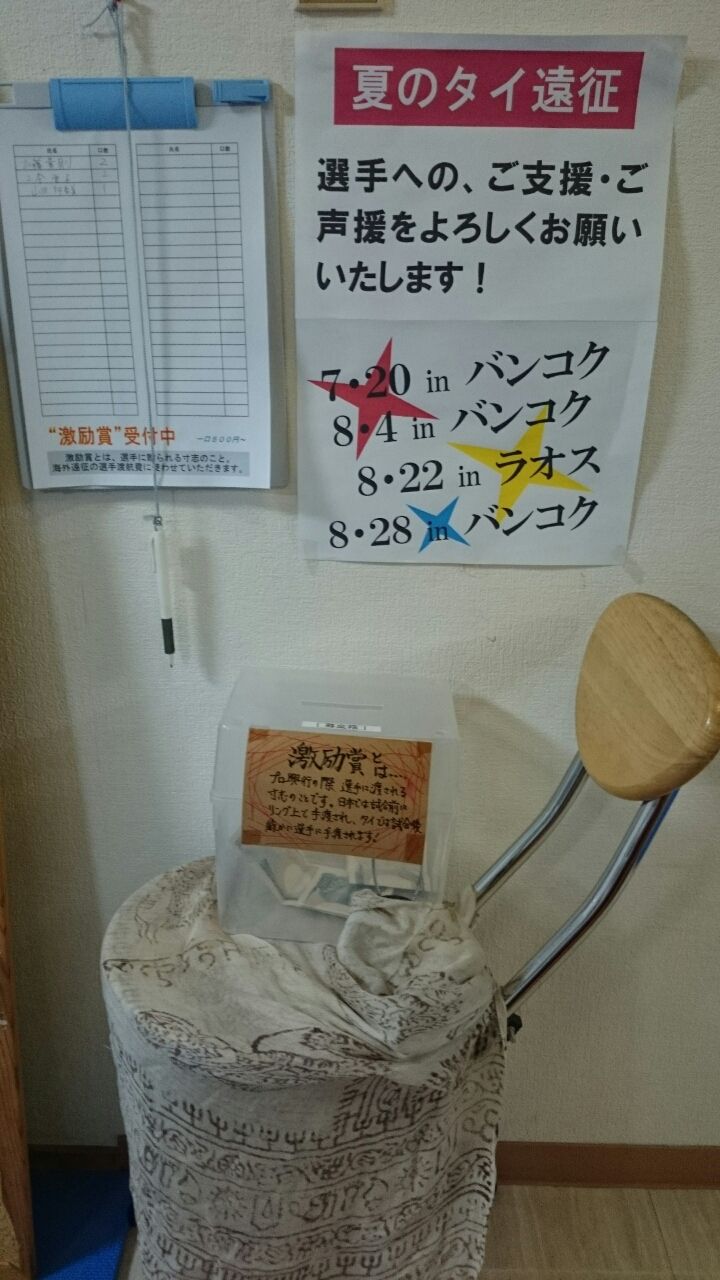 氏名 口数 氏名 口数
2
2
1
“激励賞”受付中 一口500円~
激励賞とは、選手に贈られる寸志のこと。
海外遠征の選手渡航費に使わせていただきます。
夏のタイ遠征
選手への、ご支援・ご
声援をよろしくお願い
いたします!
7・20 in バンコク
8・4 in バンコク
8・22 in ラオス
8・28 in バンコク
激励賞とは…
プロ興行の際 選手に渡される
寸志のことです。日本では試合前に
リング上で手渡され、タイでは試合後
に選手に手渡されます!